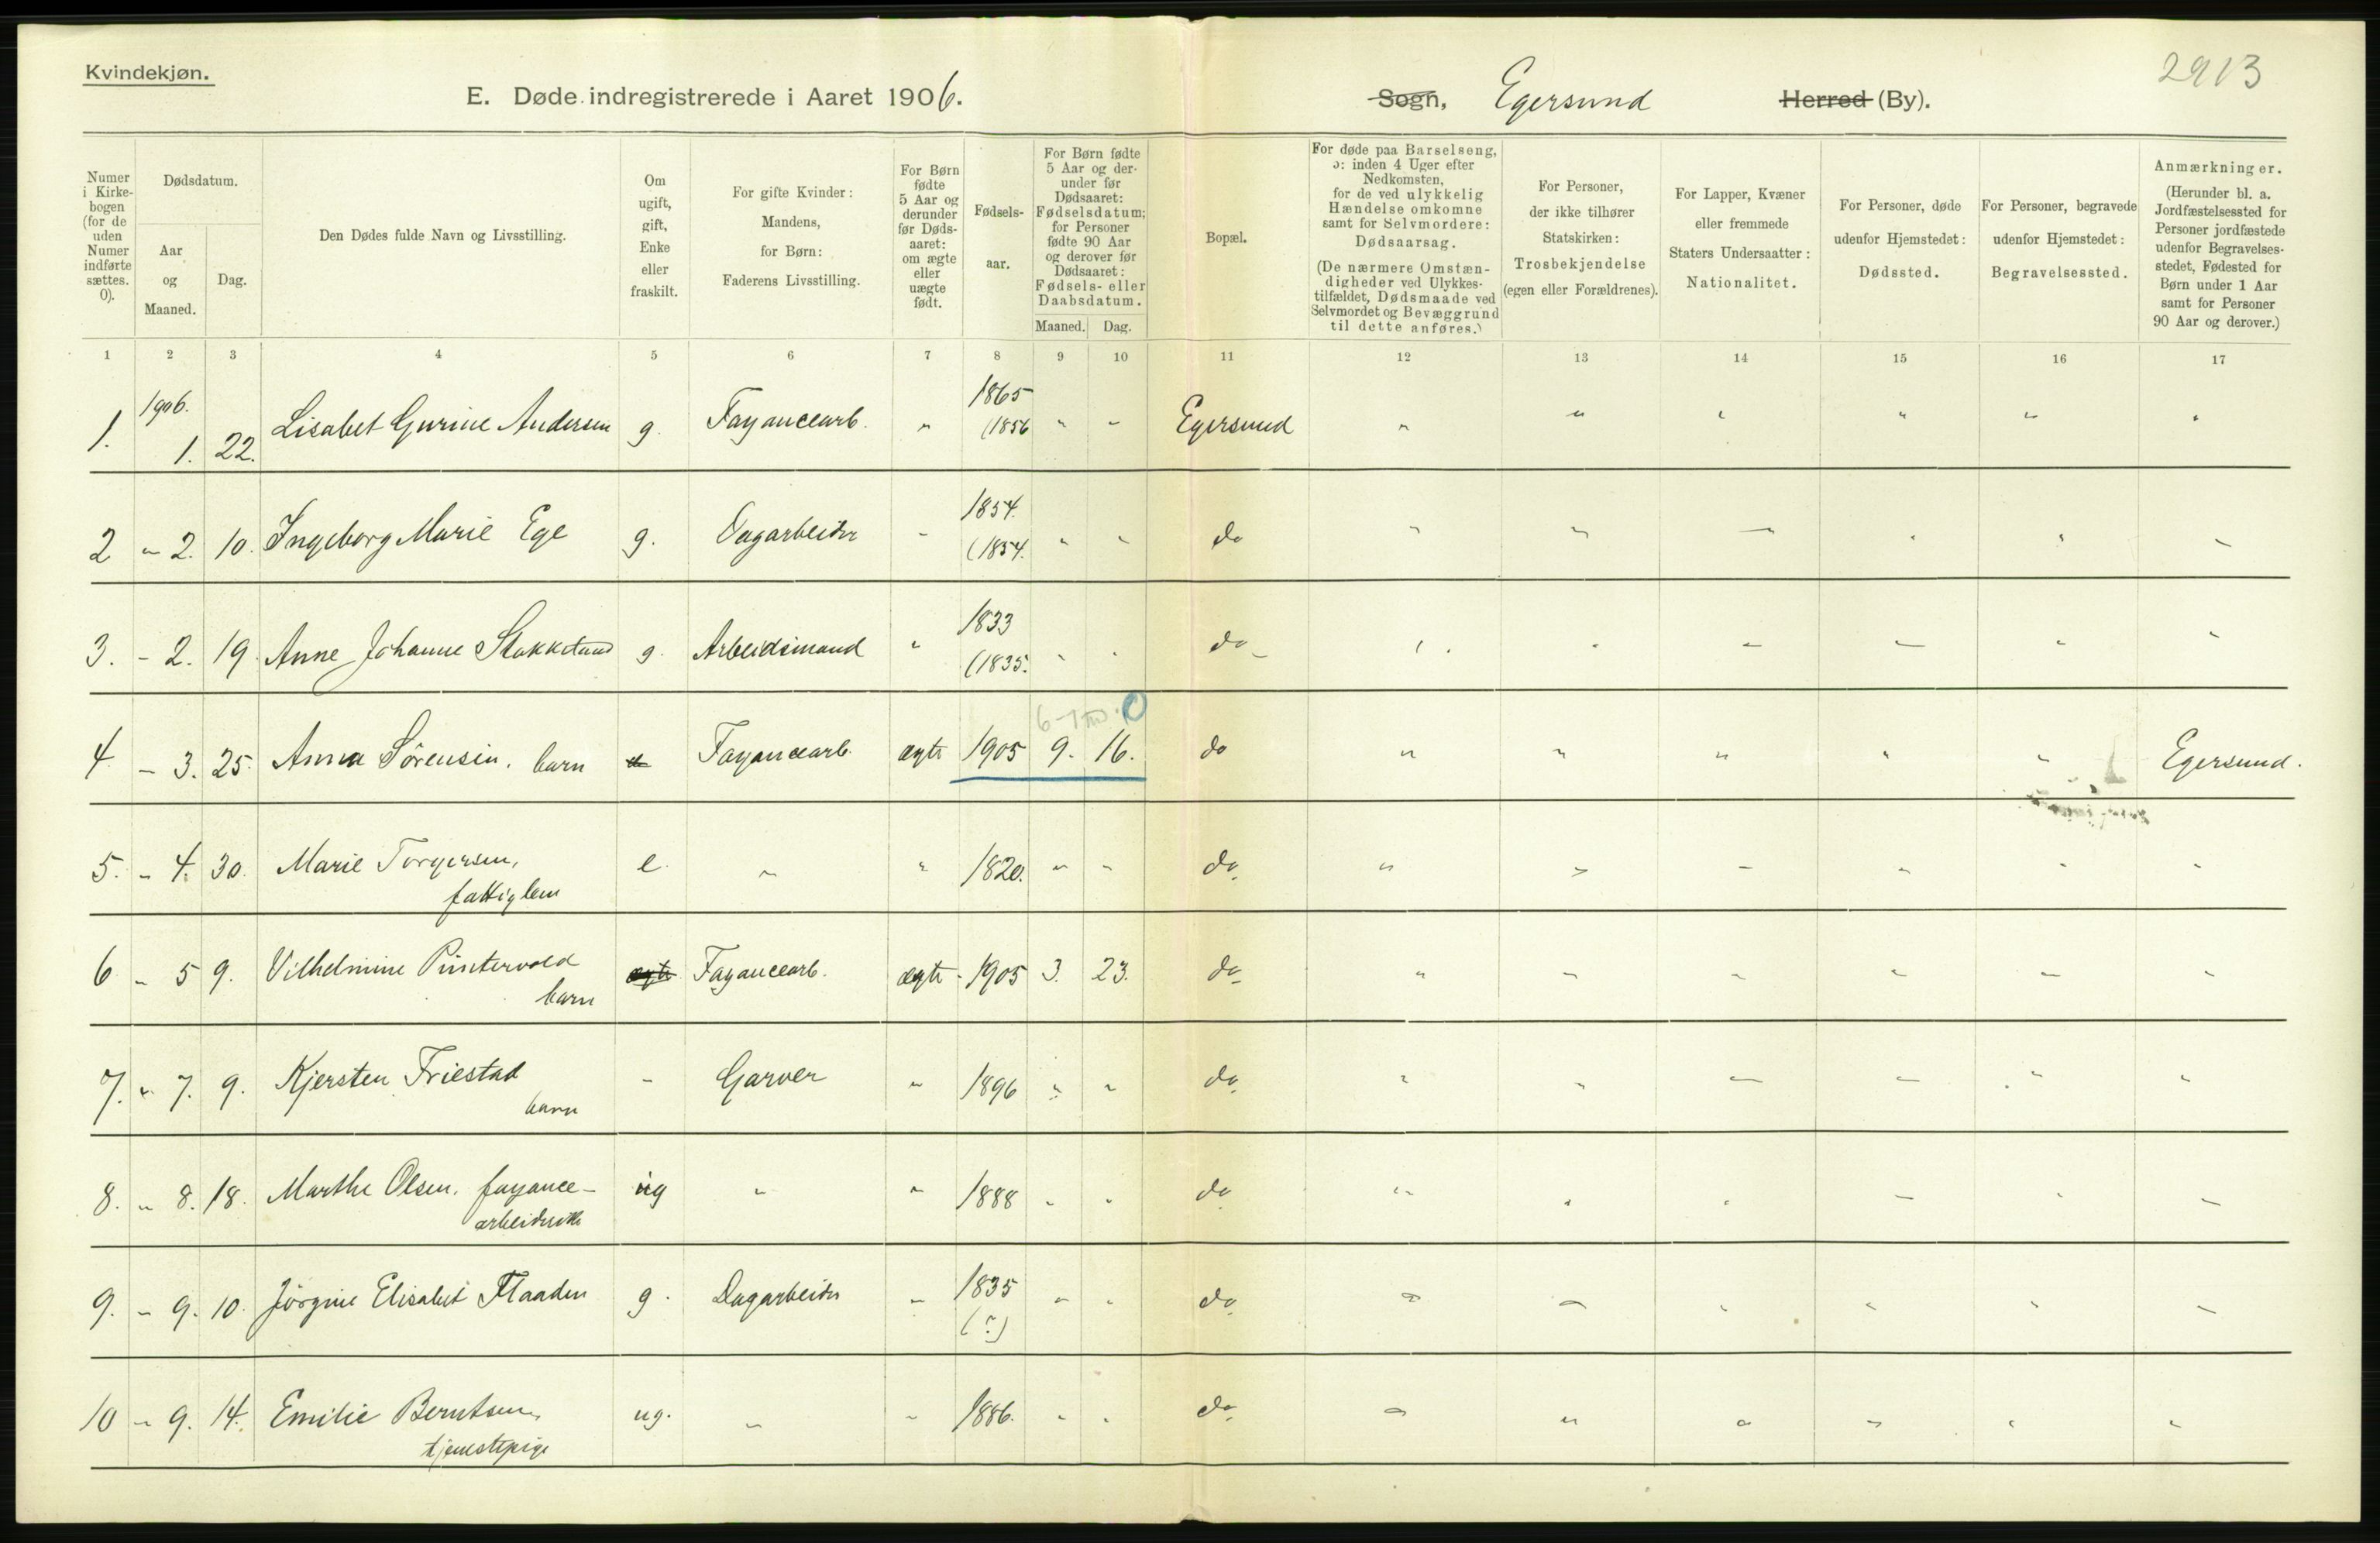 Kvindekjøn.
2913
E. Døde indregistrerede i Aaret 1906.
Sogn, Egersund Herred (By).
Numer i Kirke-bogen (for de uden Numer indførte sættes. 0).
Dødsdatum.
Aar og Maaned.
Dag.
Den Dødes fulde Navn og Livsstilling.
Om ugift, gift, Enke eller fraskilt.
For gifte Kvinder: Mandens, for Børn: Faderens Livsstilling.
For Børn fødte 5 Aar og derunder før Døds-aaret: om ægte eller uægte født.
Fødsels-aar.
For Børn fødte 5 Aar og der-under før Dødsaaret: Fødselsdatum; for Personer fødte 90 Aar og derover før Dødsaaret: Fødsels- eller Daabsdatum.
Maaned. Dag.
Bopæl.
For døde paa Barselseng, ɔ: inden 4 Uger efter Nedkomsten, for de ved ulykkelig Hændelse omkomne samt for Selvmordere: Dødsaarsag.
(De nærmere Omstæn-digheder ved Ulykkes-tilfældet, Dødsmaade ved Selvmordet og Bevæggrund til dette anføres.)
For Personer, der ikke tilhører Statskirken: Trosbekjendelse (egen eller Forældrenes).
For Lapper, Kvæner eller fremmede Staters Undersaatter: Nationalitet.
For Personer, døde udenfor Hjemstedet: Dødssted.
For Personer, begravede udenfor Hjemstedet: Begravelsessted.
Anmærkninger.
(Herunder bl. a. Jordfæstelsessted for Personer jordfæstede udenfor Begravelses-stedet, Fødested for Børn under 1 Aar samt for Personer 90 Aar og derover.)
1 2 3 4 5 6 7 8 9 10 11 12 13 14 15 16 17
1. 1906. 1. 22. Lisabet Gurine Andersen g. Fayancearb. " 1865 (1856 " " Egersund " " " " " "
2 " 2. 10. Ingeborg Marie Ege g. Dagarbeider " 1854. (1854. " " do " " " " " "
3. - 2. 19. Anne Johanne Stokkeland g. Arbeidsmand " 1833 (1835. " " do " " " " " "
4 - 3. 25. Anna Sörensen. barn Fayancearb. ægte 1905 9. 16. do " " " " " Egersund.
5. - 4. 30. Marie Torgersen, e. " " 1820. " " do. " " " " " "
fattiglem
6 - 5 9. Vilhelmine Puntervold ægte Fayancearb. ægte 1905 3. 23. do. " " " " " "
barn
7. " 7. 9. Kjersten Friestad - Garver " 1896 " " do. " " " " " "
barn
8. " 8. 18. Marthe Olsen. fayance- ug " " 1888 " " do. " " " " " "
arbeiderske
9. - 9. 10. Jörgine Elisabet Flaaden g. Dagarbeider " 1835 (?) " " do. " " " " " "
10 - 9. 14. Emilie Berntsen, ug. " " 1886. " " do. " " " " " "
tjenestepige